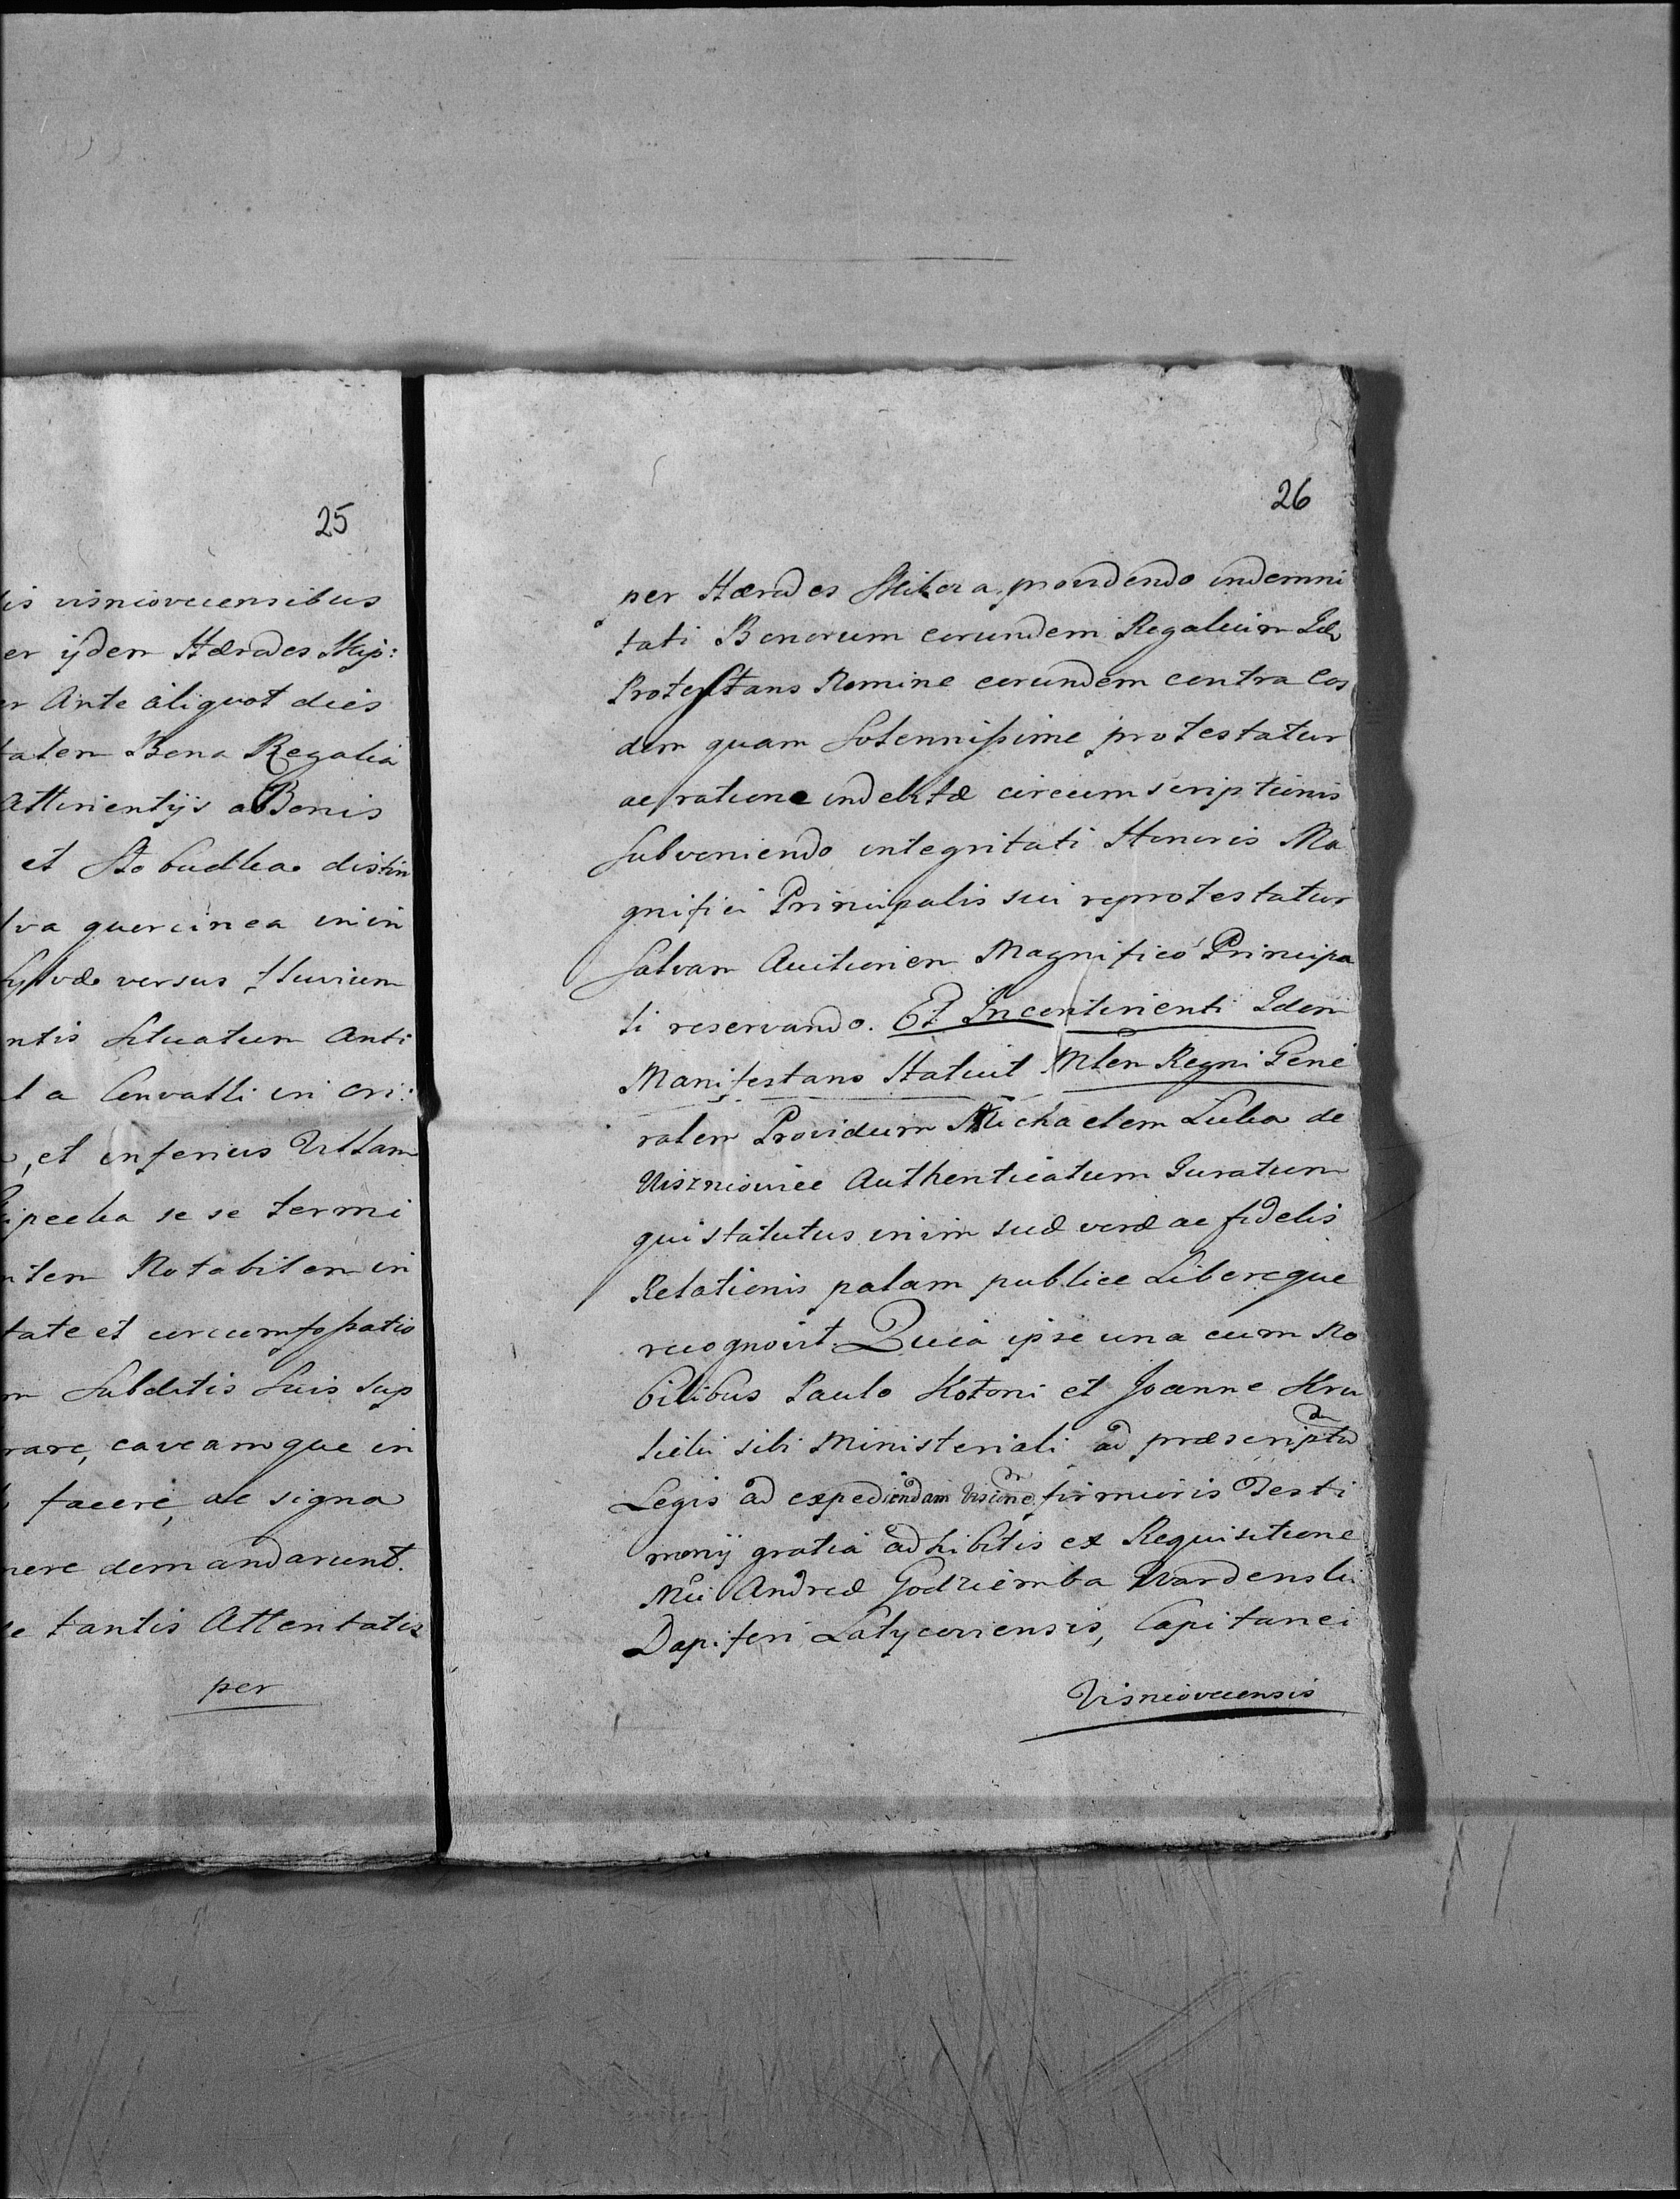 25
is visniovecensibus
er ijdem Hæredes Mij:
er Ante aliquot dies
talem Bona Regalia
Attinentijs a Bonis
et Slobudka distin
lva quercinea inin
Sylvæ versus fluvium
ntis Situatum Anti
l a Convalli in ori:
, et inferius Villam
se se termi
ntem Notabilem in
tate et circumfossatio
m Subditis Suis Sup
rare, caveamque in
facere, ac signa
nere demandarunt.
e tantis Attentatis
per
26
per Hæredes providendo indemni
tati Bonorum eorundem Regalium Idem
Protestans Nomine eorundem contra Eos
dem quam Solennissime protestatur
ac ratione indebitæ circumscriptionis
Subveniendo integritati Honoris Ma
gnifici Principalis sui reprotestatur
Salvam Auctionem Magnifico Principa
li reservando. Et Incontinenti Idem
Manifestans Statuit Mlem Regni Gene
ralem Providum Michaelem Luka de
Viszniowiec Authenticatum Juratum
qui statutus inim suæ veræ ac fidelis
Relationis palam publice Libereque
recognovit Quia ipse una cum No
bilibus Paulo Kotoni et Joanne Hru
sibi Ministeriali ad præscriptu
Legis ad expediendam firmioris Testi
monij gratia adhibitis ex Requisitione
Mci Andreæ Godziemba Wardenski
Dapiferi Latyczoviensis, Capitanei
Visniovecensis